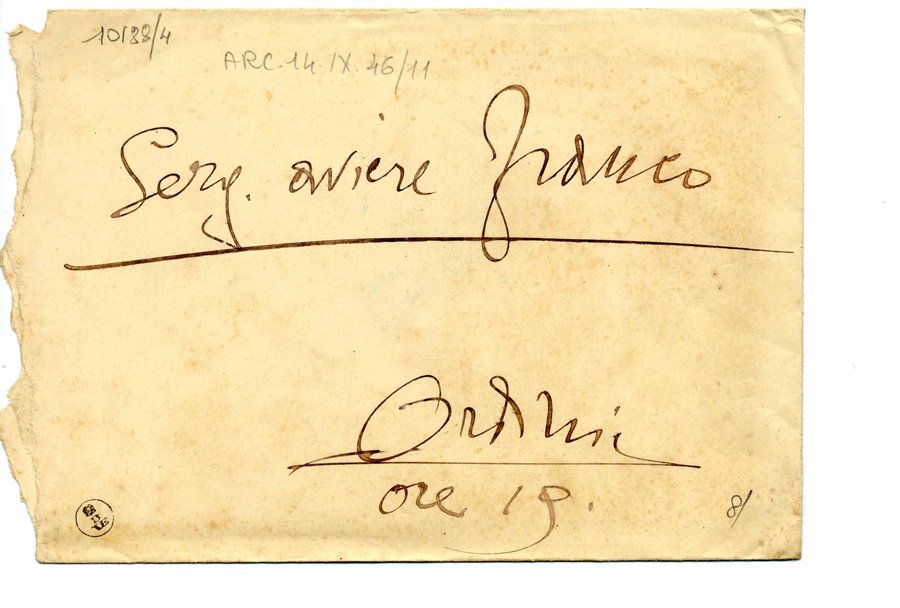 10188/4
ARC. 14. IX. 46/11
Serg. aviere Franco
Ordini
ore 19.
8/